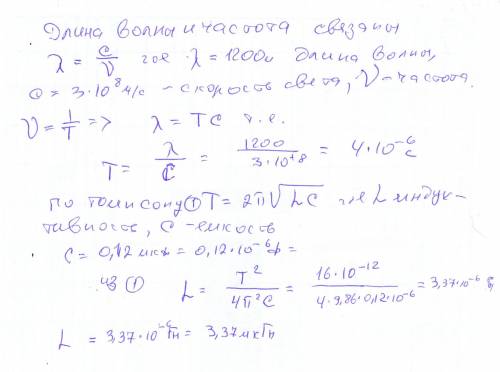 Длина волны и частота связаны
λ = c/ν где λ = 1200м длина волны,
c = 3·10⁸ м/с - скорость света, ν - частота.
ν = 1/T => λ = TC т.е.
T = λ/C = 1200/3·10⁺⁸ = 4·10⁻⁶ с
по томпсону ① T = 2π√LC где L индук-
тивность, C - емкость
C = 0,12 мкф = 0,12·10⁻⁶ ф =
из ① L = T²/4π²C = 16·10⁻¹²/4·9,86·0,12·10⁻⁶ = 3,37·10⁻⁶ Гн
L = 3,37·10⁻⁶ Гн = 3,37 мкГн